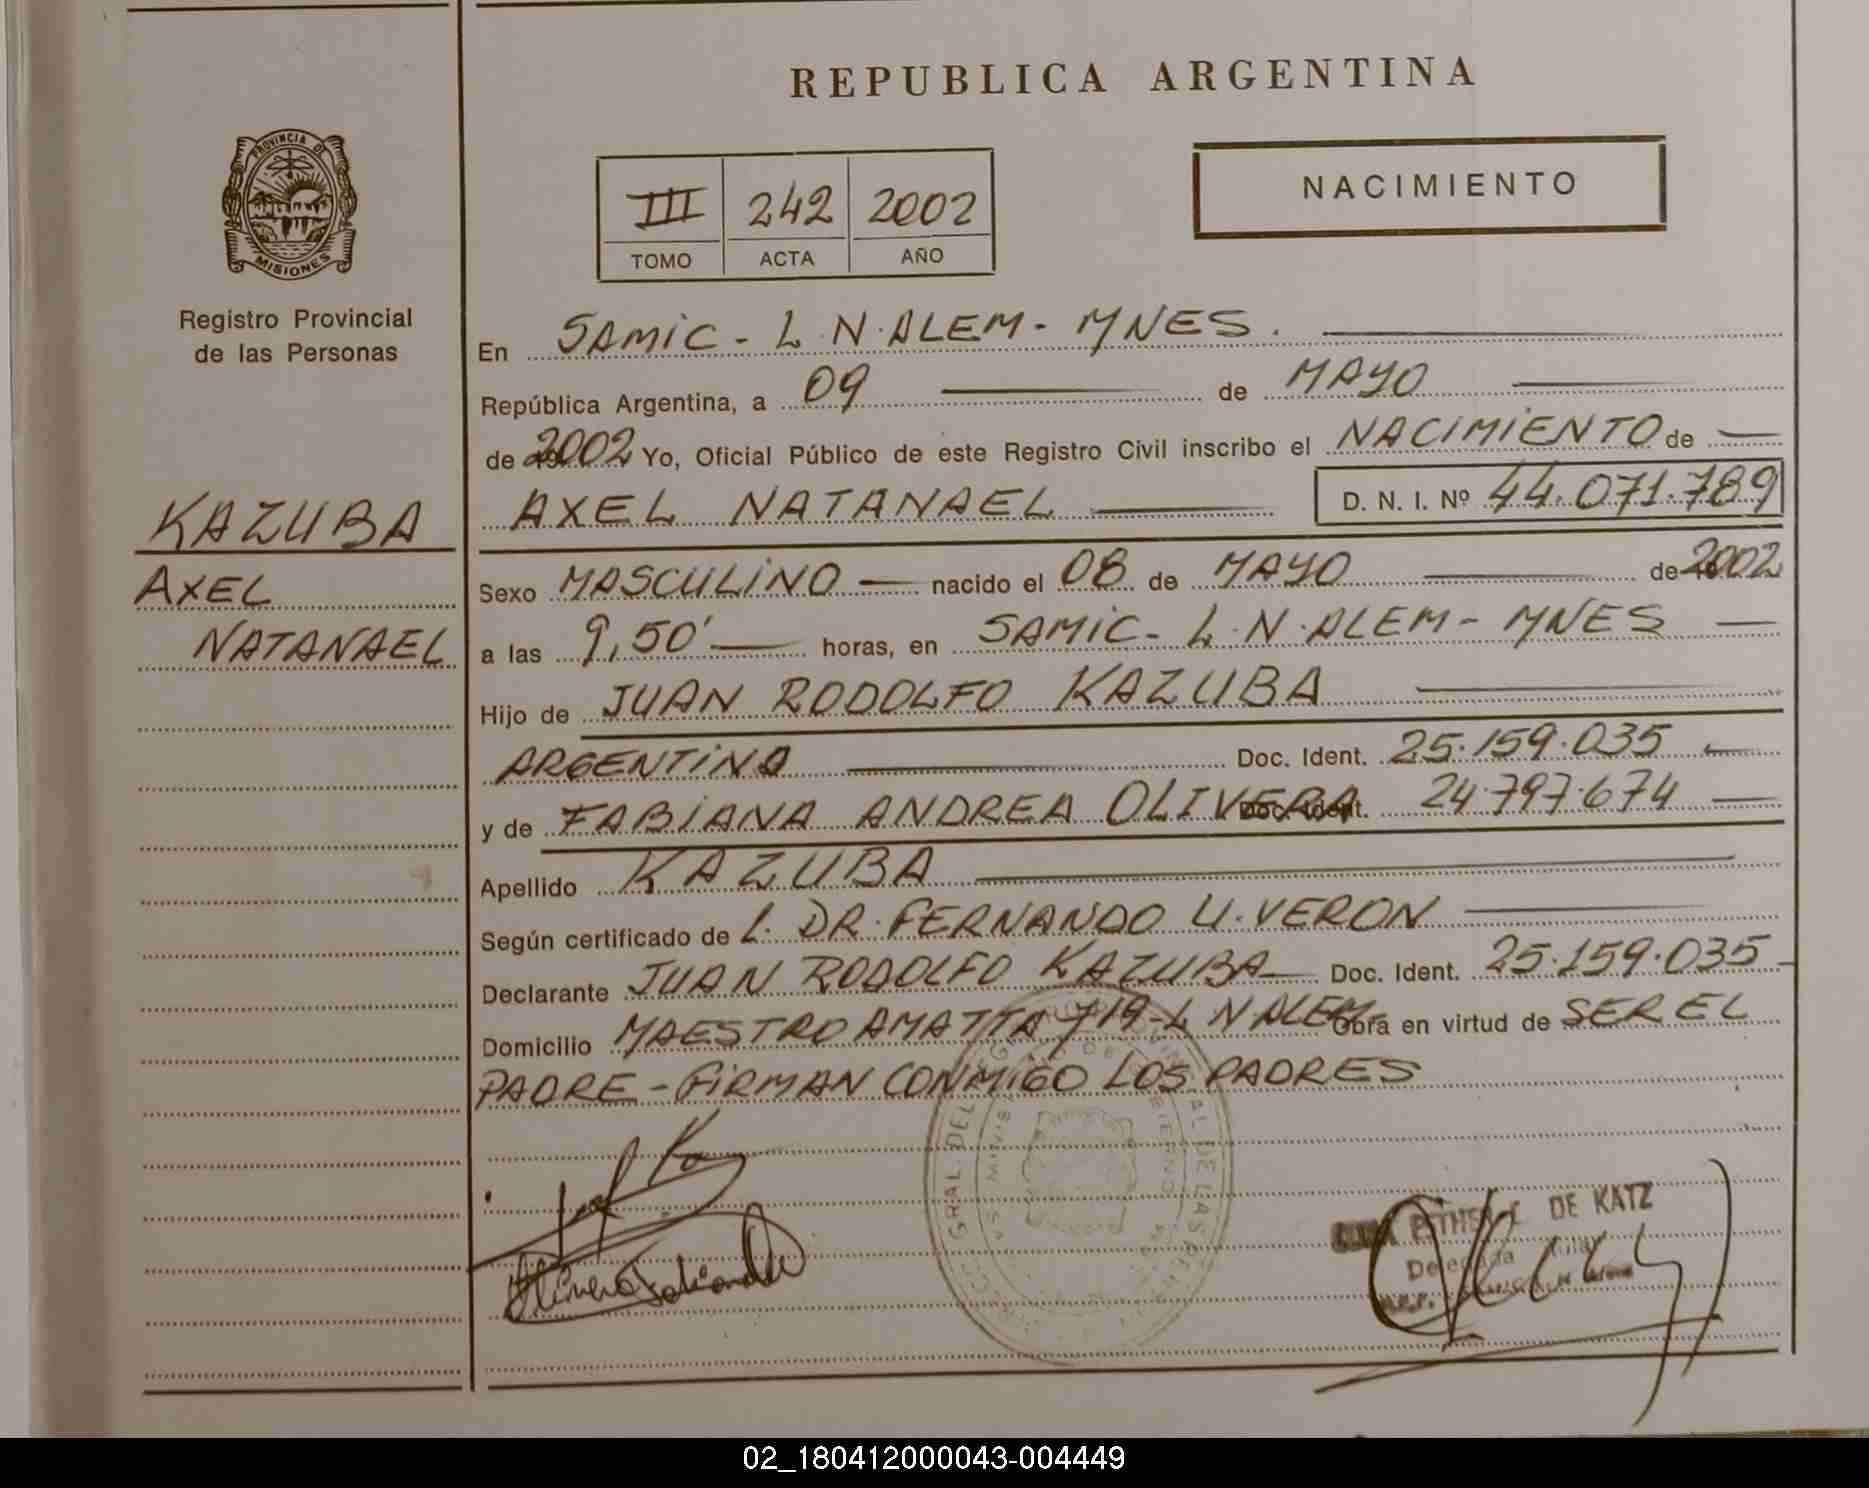 REPUBLICA ARGENTINA
PROVINCIA D
MISIONES
Registro Provincial
de las Personas
III 242 2002
TOMO ACTA AÑO
NACIMIENTO
KAZUBA
AXEL
NATANAEL
En SAMIC - L.N.ALEM - MNES.
República Argentina, a 09 de MAYO
de 2002 Yo, Oficial Público de este Registro Civil inscribo el NACIMIENTO de
AXEL NATANAEL D. N. I. Nº 44.071.789
Sexo MASCULINO nacido el 08 de MAYO de 2002
a las 9,50' horas, en SAMIC - L.N.ALEM - MNES
Hijo de JUAN RODOLFO KAZUBA
ARGENTINO Doc. Ident. 25.159.035
y de FABIANA ANDREA OLIVERA Doc. Ident. 24.797.674
Apellido KAZUBA
Según certificado de L. DR. FERNANDO U. VERON
Declarante JUAN RODOLFO KAZUBA Doc. Ident. 25.159.035
Domicilio MAESTRO AMATTA 719 - L N ALEM - Obra en virtud de SER EL
PADRE - FIRMAN CONMIGO LOS PADRES
DE KATZ
Delegada
02_180412000043-004449